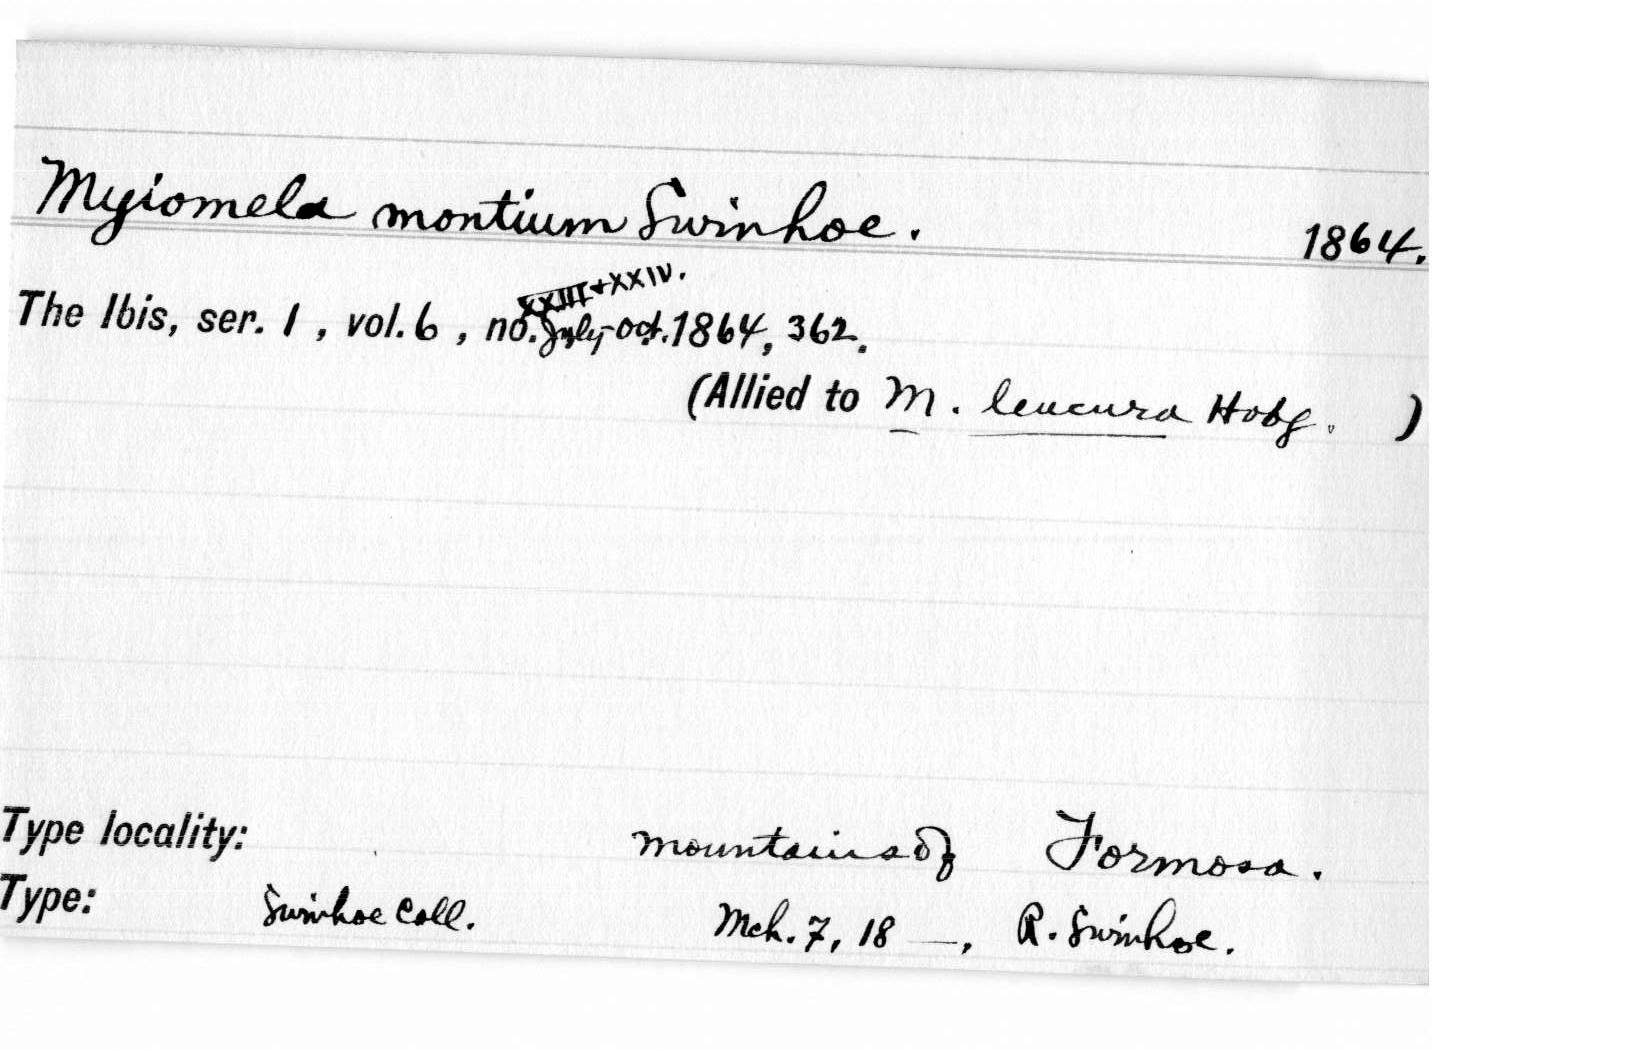 Myiomela montium Swinhoe. 1864.
XXIII+XXIV.
The Ibis, ser. 1, vol. 6, no. July-Oct. 1864, 362.
(Allied to M. leucura Hodg. )
Type locality: mountains of Formosa.
Type: Swinhoe Coll. Mch. 7, 18 —, R. Swinhoe.